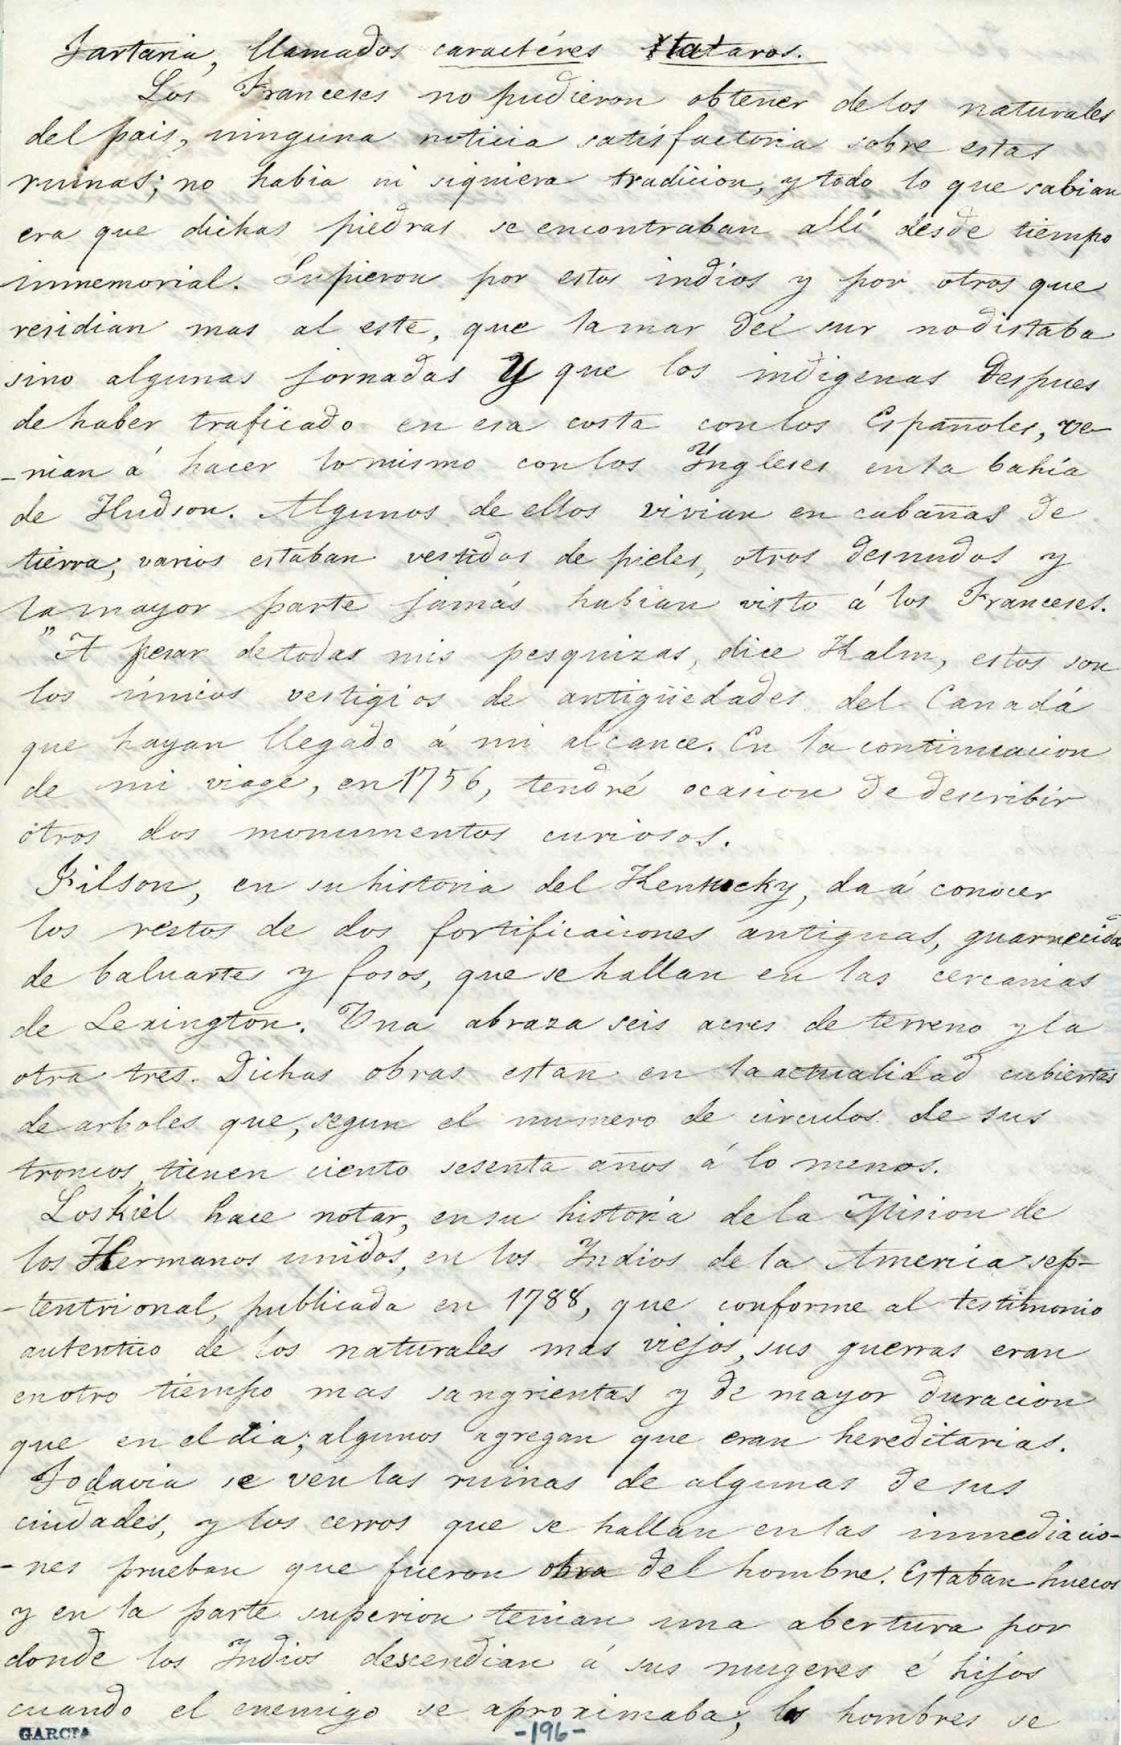 Tartaria, llamados caractéres tataros.
Los Franceses no pudieron obtener de los naturales
del pais, ninguna noticia satisfactoria sobre estas
ruinas; no habia ni siquiera tradicion, y todo lo que sabian
era que dichas piedras se encontraban allí desde tiempo
inmemorial. Supieron por estos indios y por otros que
residian mas al este, que la mar del sur no distaba
sino algunas jornadas y que los indigenas despues
de haber traficado en esa costa con los Españoles, ve-
-nian á hacer lo mismo con los Yngleses en la bahía
de Hudson. Algunos de ellos vivian en cabañas de
tierra; varios estaban vestidos de pieles, otros desnudos y
la mayor parte jamás habian visto á los Franceses.
"A pesar de todas mis pesquizas, dice Kalm, estos son
los únicos vestigios de antigüedades del Canadá
que hayan llegado á mi alcance. En la continuacion
de mi viage, en 1756, tendré ocasion de describir
otros dos monumentos curiosos.
Filson, en su historia del Kentucky, da á conocer
los restos de dos fortificaciones antiguas, guarnecidas
de baluartes y fosos, que se hallan en las cercanias
de Lexington. Una abraza seis acres de terreno y la
otra tres. Dichas obras estan en la actualidad cubiertas
de arboles que, segun el numero de circulos de sus
troncos, tienen ciento sesenta años á lo menos.
Loskiel hace notar, en su historia de la Mision de
los Hermanos unidos, en los Indios de la America sep-
-tentrional, publicada en 1788, que conforme al testimonio
autentico de los naturales mas viejos, sus guerras eran
en otro tiempo mas sangrientas y de mayor duracion
que en el dia; algunos agregan que eran hereditarias.
Todavia se ven las ruinas de algunas de sus
ciudades, y los cerros que se hallan en las inmediacio-
-nes prueban que fueron obra del hombre. Estaban huecos
y en la parte superior tenian una abertura por
donde los Indios descendian á sus mugeres é hijos
cuando el enemigo se aproximaba; los hombres se
GARCIA
-196-